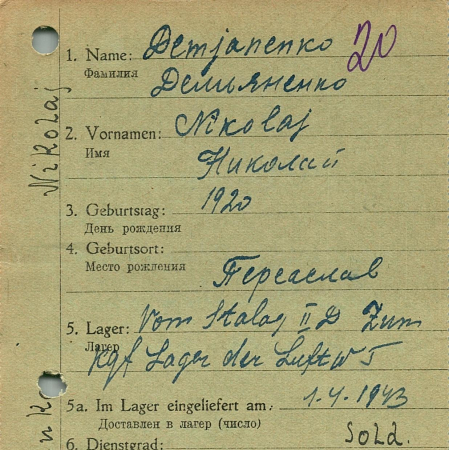 1. Name: Demjanenko 20
Фамилия Демьяненко
2. Vornamen: Nikolaj
Имя Николай
3. Geburtstag: 1920
День рождения
4. Geburtsort:
Место рождения Переяслав
5. Lager: Vom Stalag II D Zum
Лагерь Kgf Lager der Luftw I
5a. Im Lager eingeliefert am: 1.4.1943
Доставлен в лагерь (число)
6. Dienstgrad: Sold.
Nikolaj